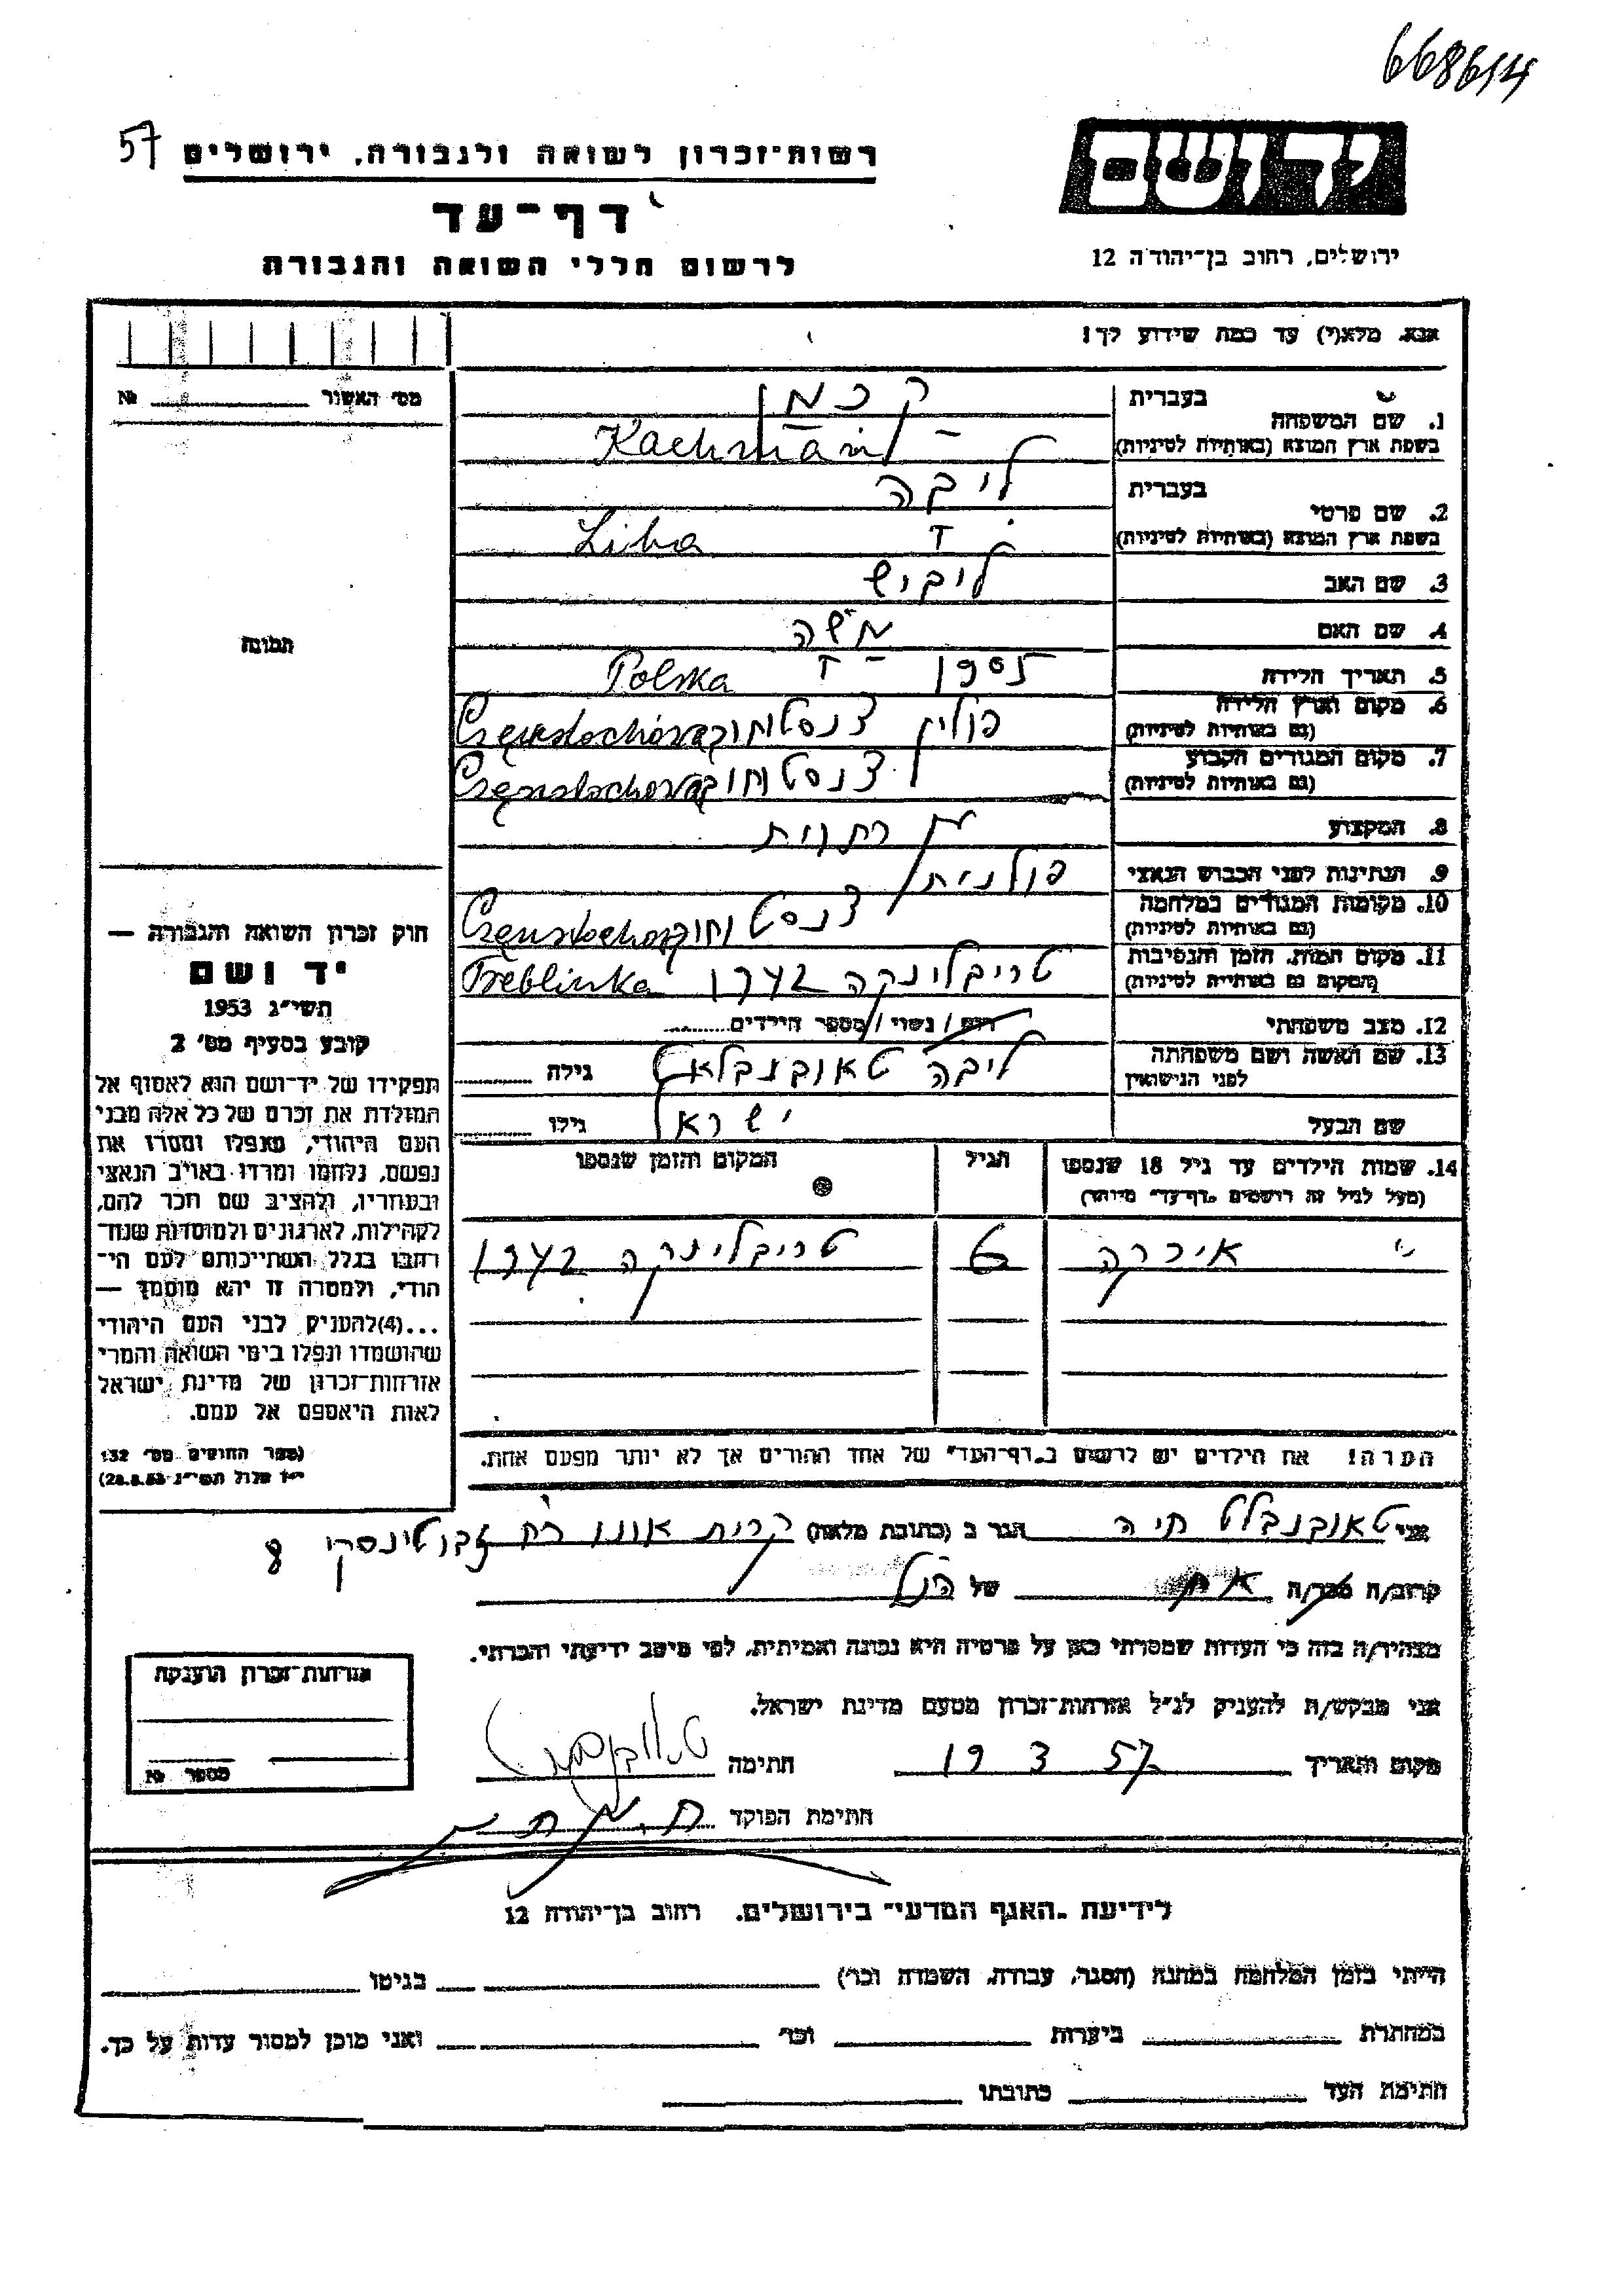 668614
57
רשות־זכרון לשואה ולגבורה, ירושלים
יד ושם
דף־עד
לרשום חללי השואה והגבורה
ירושלים, רחוב בן־יהודה 12
אנא, מלא(י) עד כמה שידוע לך!
מס' האשור № 
1. שם המשפחה בעברית קכמן
בשפת ארץ המוצא (באותיות לטיניות) Kachman
2. שם פרטי בעברית ליבה
בשפת ארץ המוצא (באותיות לטיניות) Liba
3. שם האב ליביש
4. שם האם משה
תמונה
5. תאריך הלידה 1905 Polska
6. מקום וארץ הלידה (גם באותיות לטיניות) פולין צנסטוחובה Częnstochówa
7. מקום המגורים הקבוע (גם באותיות לטיניות) צנסטוחובה Częnstochowa
8. המקצוע
9. הנתינות לפני הכבוש הנאצי פולנית
10. מקומות המגורים במלחמה (גם באותיות לטיניות) צנסטוחוב Częnstochow
11. מקום המות, הזמן והנסיבות (המקום גם באותיות לטיניות) טריבלינקה 1942 Treblinka
12. מצב משפחתי רווק / נשוי / מספר הילדים
13. שם האשה ושם משפחתה לפני הנישואין ליבה טאובנבלאט גילה
שם הבעל ישראל גילו
14. שמות הילדים עד גיל 18 שנספו (מעל לגיל זה רושמים "דף־עד" מיוחד) הגיל המקום והזמן שנספו
אירקה 6 טריבלינקה 1942
חוק זכרון השואה והגבורה —
יד ושם
תשי"ג 1953
קובע בסעיף מס' 2
תפקידו של יד־ושם הוא לאסוף אל
המולדת את זכרם של כל אלה מבני
העם היהודי, שנפלו ומסרו את
נפשם, נלחמו ומרדו באויב הנאצי
ובעוזריו, ולהציב שם וזכר להם,
לקהילות, לארגונים ולמוסדות שנח־
רבו בגלל השתייכותם לעם הי־
הודי, ולמטרה זו יהא מוסמך —
...(4) להעניק לבני העם היהודי
שהושמדו ונפלו בימי השואה והמרי
אזרחות־זכרון של מדינת ישראל
לאות היאספם אל עמם.
(ספר החוקים מס' 132
י"ז אלול תשי"ג 28.8.53)
הערה! את הילדים יש לרשום ב"דף־העד" של אחד ההורים אך לא יותר מפעם אחת.
אני טאובנבלט חיה הגר ב (כתובת מלאה) קרית אונו רח זבוטינסקי 8
קרוב/ה מכר/ה אח של הנל
מצהיר/ה בזה כי העדות שמסרתי כאן על פרטיה היא נכונה ואמיתית, לפי מיטב ידיעתי והכרתי.
אני מבקש/ת להעניק לנ"ל אזרחות־זכרון מטעם מדינת ישראל.
מקום ותאריך 19 3 57 חתימה
חתימת הפוקד
אזרחות־זכרון הוענקה
מספר №
לידיעת "האגף המדעי" בירושלים, רחוב בן־יהודה 12
הייתי בזמן המלחמה במחנה (הסגר, עבודה, השמדה וכו') בגיטו
במחתרת ביערות וכו' ואני מוכן למסור עדות על כך.
חתימת העד כתובתו